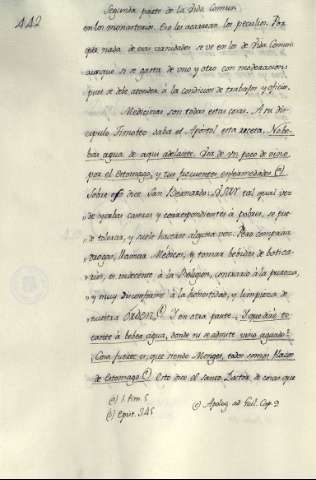 442
Segunda parte de la Vida Comun
en los monasterios. Eso les acarrean los peculios. Por
que nada de esas curiosidades se ve en los de Vida Comun
aunque si se gasta de uno y otro con moderacion:
pues se debe atender à la condicion de trabajos y oficio.
Medicinas son todas estas cosas. A su dis-
cipulo Timoteo daba el Apostol esta receta. No be-
bas agua de aqui adelante. Usa de un poco de vino
por el Estomago, y tus frecuentes enfermedades (a)
Sobre esto dice San Bernardo: tal qual vez
de yerbas caseras y correspondientes à pobres, se pue-
de tolerar, y suele hacerse alguna vez. Pero comprar
drogas, llamar Médicos, y tomar bebidas de botica-
rios, es indecente à la Religion, contrario à la pureza,
y muy disconforme à la honestidad, y limpieza de
nuestra Orden (b) Y en otra parte: Y que diré to-
cante à beber agua, donde ni se admite vino aguado?
Cosa fuerte es, que siendo Monges, todos somos flacos
de Estomago (c) Esto dice el santo Doctor, de cosas que
(a) 1. Tim. 5
(b) Epist. 345
(c) Apolog. ad Guil. Cap. 9